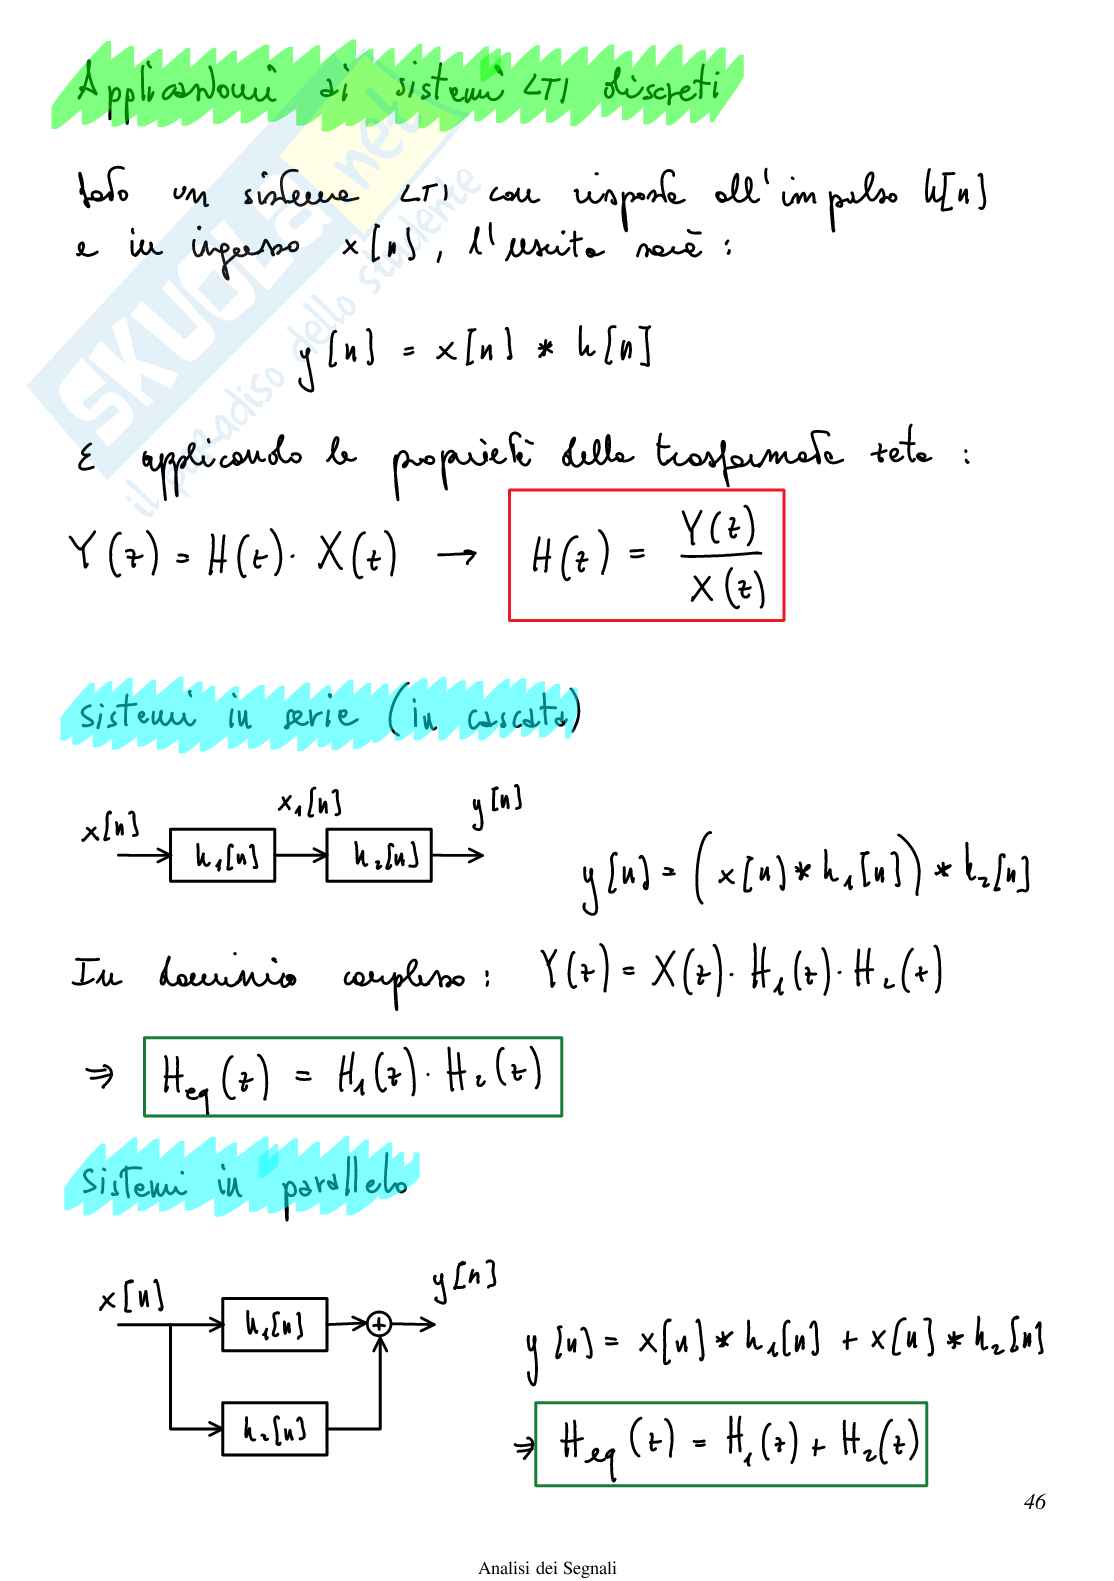 Applicazioni ai sistemi LTI discreti
dato un sistema LTI con risposta all'impulso h[n]
e in ingresso x[n], l'uscita sarà:
y[n] = x[n] * h[n]
E applicando le proprietà della trasformata zeta:
Y(z) = H(z) · X(z) → H(z) = Y(z) / X(z)
Sistemi in serie (in cascata)
x[n] h₁[n] x₁[n] h₂[n] y[n]
y[n] = (x[n] * h₁[n]) * h₂[n]
In dominio complesso: Y(z) = X(z) · H₁(z) · H₂(z)
⇒ Heq(z) = H₁(z) · H₂(z)
Sistemi in parallelo
x[n] h₁[n] + y[n]
h₂[n]
y[n] = x[n] * h₁[n] + x[n] * h₂[n]
⇒ Heq(z) = H₁(z) + H₂(z)
46
Analisi dei Segnali
SKUOLA.net
il paradiso dello studente